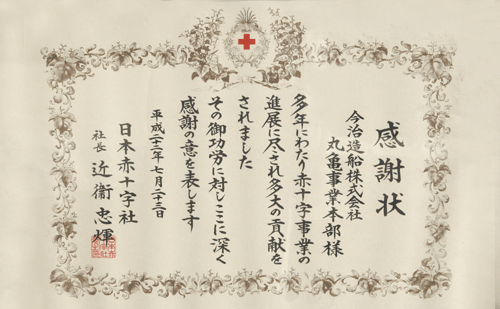 感謝状
今治造船株式会社
丸亀事業本部様
多年にわたり赤十字事業の
進展に尽され多大の貢献を
されました
その御功労に対しここに深く
感謝の意を表します
平成二十二年七月二十三日
日本赤十字社
社長 近衞忠煇